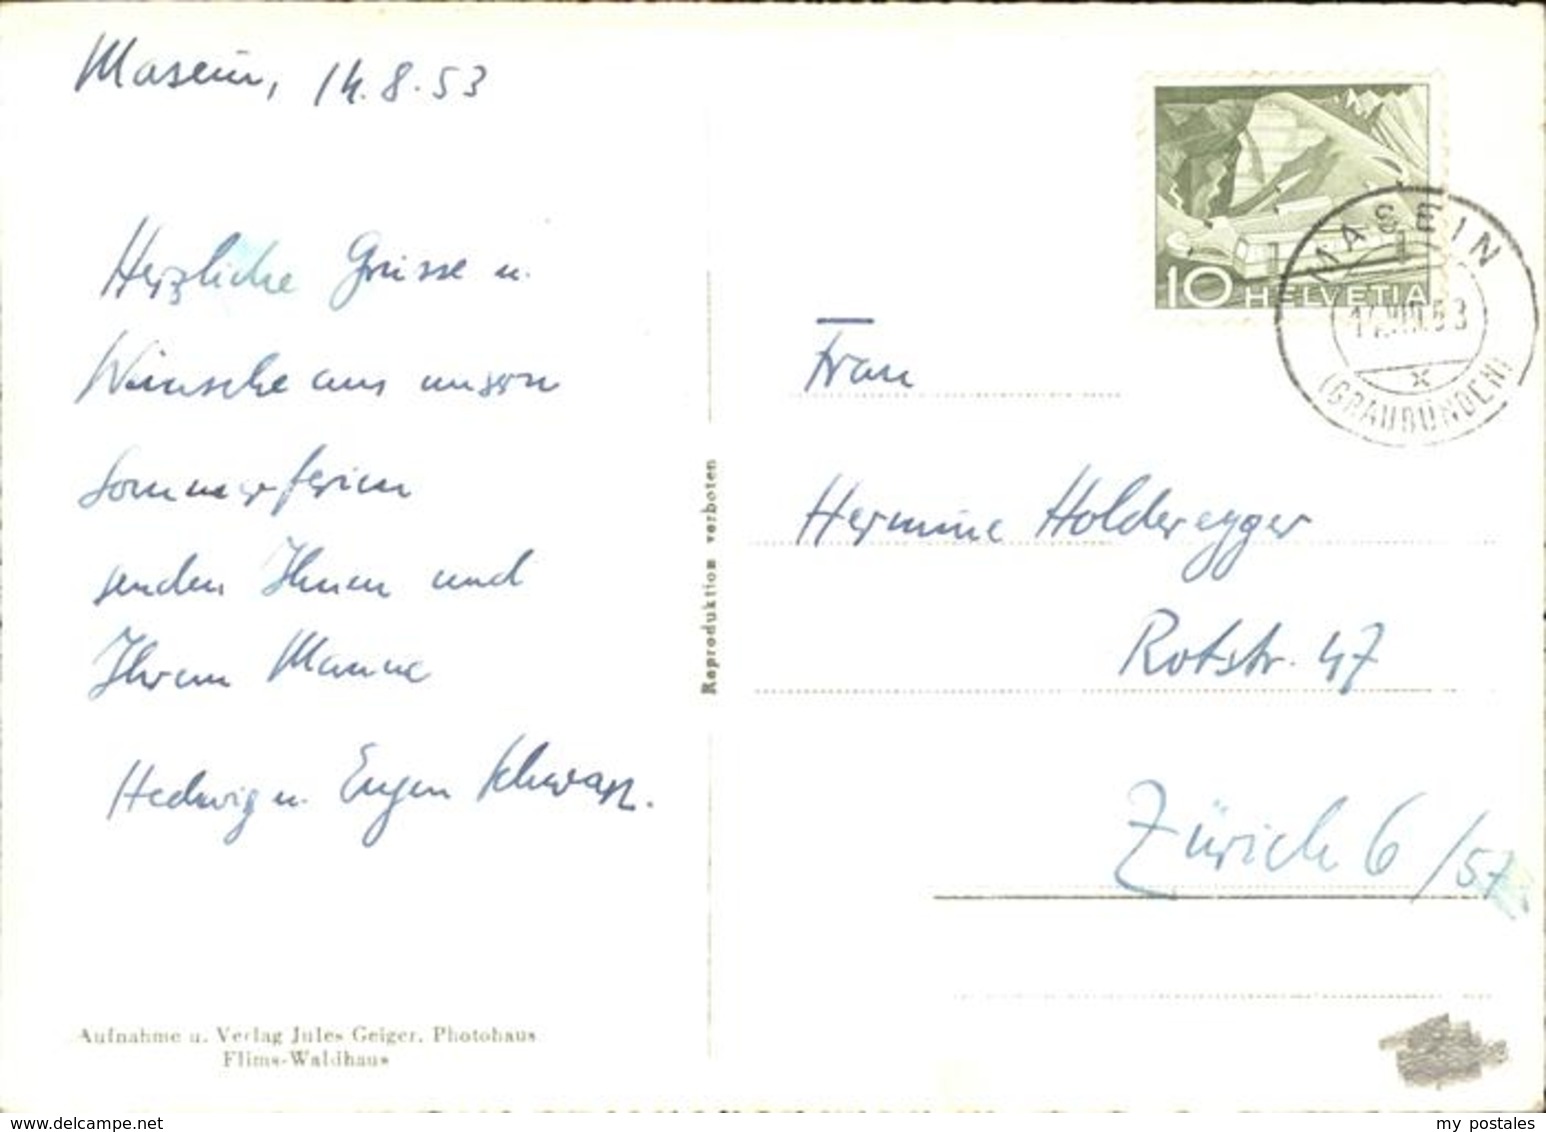 Masein, 14.8.53
Herzliche Grüsse u.
Wünsche aus unsern
Sommerferien
senden Ihnen und
Ihrem Manne
Hedwig u. Eugen
Aufnahme u. Verlag Jules Geiger, Photohaus
Flims-Waldhaus
Reproduktion verboten
10 HELVETIA
MASEIN
14.VIII.53
X
(GRAUBÜNDEN)
Frau
Hermine Holderegger
Rotstr. 47
Zürich 6/57
www.delcampe.net
my_postales